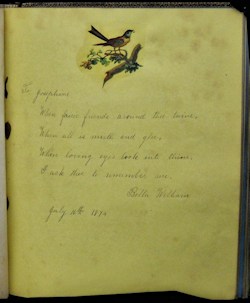 To Josephine
When fair friends around thee twine,
When all is mirth and glee,
When loving eyes look into thine,
I ask thee to remember me.
Bella
July